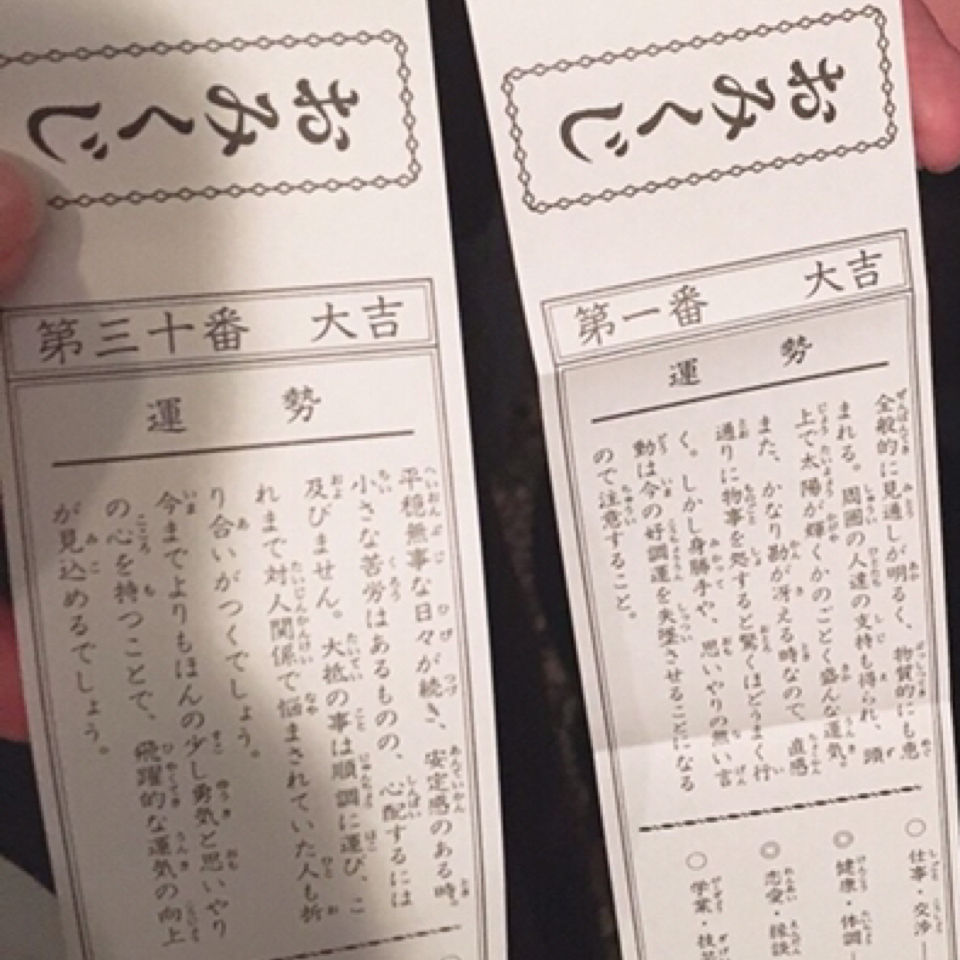 おみくじ
第三十番 大吉
運勢
平穏無事な日々が続き、安定感のある時。
小さな苦労はあるものの、心配するには
及びません。大抵の事は順調に運び、こ
れまで対人関係で悩まされていた人も折
り合いがつくでしょう。
今までよりもほんの少し勇気と思いやり
の心を持つことで、飛躍的な運気の向上
が見込めるでしょう。
おみくじ
第一番 大吉
運勢
全般的に見通しが明るく、物質的にも恵
まれる。周囲の人達の支持も得られ、頭
上で太陽が輝くかのごとく盛んな運気。
また、かなり勘が冴える時なので、直感
通りに物事を処すると驚くほどうまく行
く。しかし身勝手や、思いやりの無い言
動は今の好調運を失墜させることになる
ので注意すること。
○仕事・交渉
◎健康・体調
◎恋愛・縁談
○学業・技芸